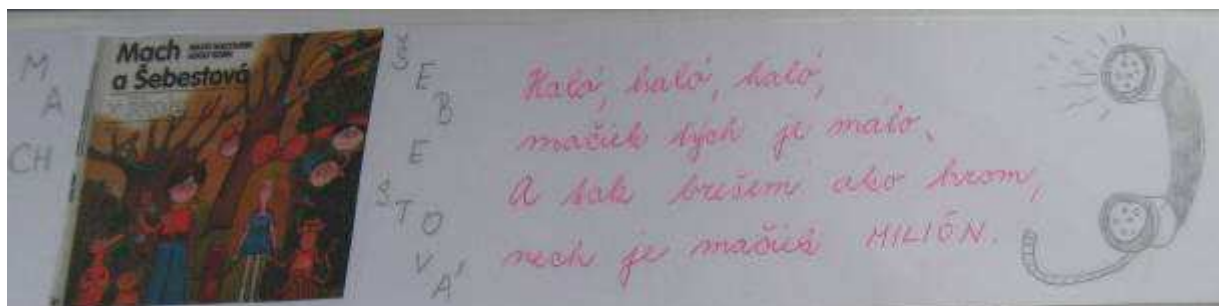 M
A
CH
Mach
a Šebestová
Š
E
B
E
S
T
O
V
Á
Haló, haló, haló,
mačiek tých je málo.
A tak brešem ako hrom,
nech je mačiek MILIÓN.